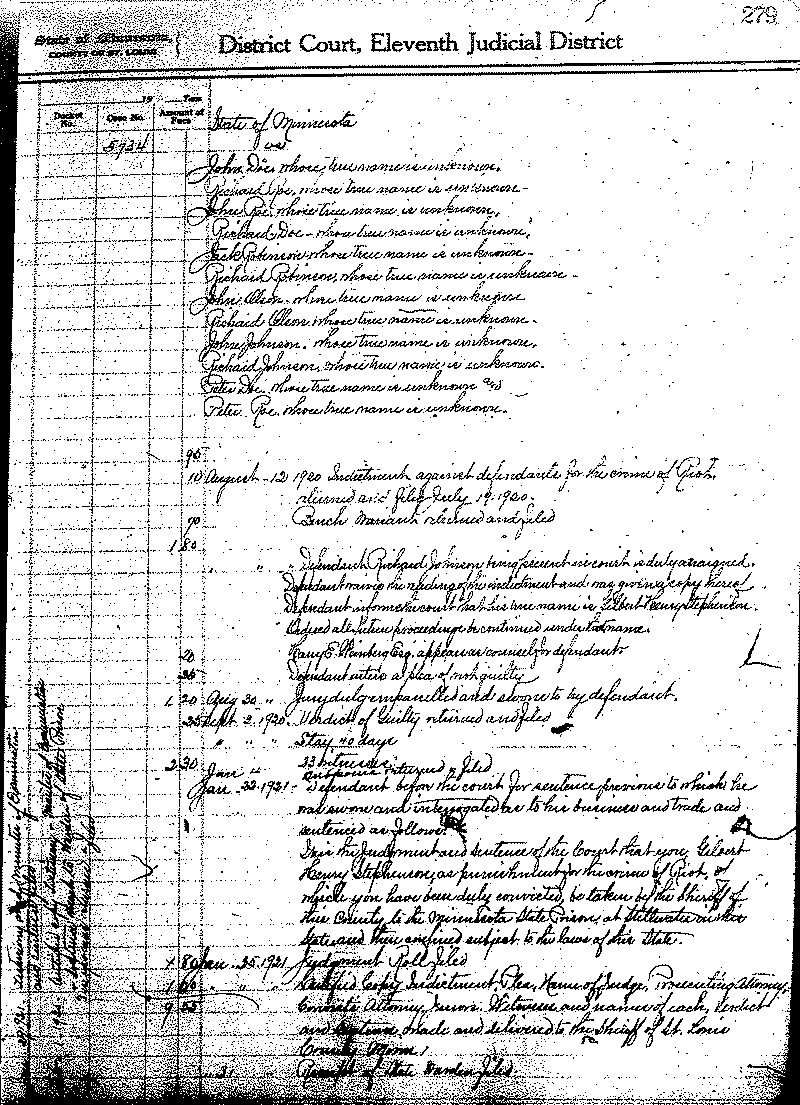 279
State of Minnesota,
COUNTY OF ST. LOUIS
District Court, Eleventh Judicial District
19 Term
Docket No. Case No. Amount of Fees
State of Minnesota
5734 vs
John Doe, whose true name is unknown.
Richard Roe, whose true name is unknown.
John Roe, whose true name is unknown.
Richard Doe - whose true name is unknown.
Jack Robinson, whose true name is unknown.
Richard Robinson, whose true name is unknown.
John Olson - whose true name is unknown
Richard Olson, whose true name is unknown.
John Johnson, whose true name is unknown.
Richard Johnson, whose true name is unknown.
Peter Doe, whose true name is unknown and
Peter Roe, whose true name is unknown.
95
10 August 12 1920 Indictment against defendants for the crime of Riot,
returned and filed July 19, 1920.
70 Bench Warrant returned and filed
1 80
" " " Defendant Richard Johnson being present in court is duly arraigned.
Defendant waives the reading of the indictment and was given a copy thereof
Defendant informs the court that his true name is Gilbert Henry Stephenson.
Ordered all future proceedings be continued under that name.
20 Harry E. Weinberg Esq. appears as counsel for defendant
25 Defendant enters a plea of not guilty
1 20 Aug 30 " Jury duly empanelled and sworn to try defendant.
25 Sept 2, 1920. Verdict of Guilty returned and filed
" " " Stay 40 days
2 30 23 Witnesses
Jan " Subpoena returned & filed
Jan. 22, 1921 - Defendant before the court for sentence previous to which he
was sworn and interrogated as to his business and trade and
sentenced as follows:
It is the Judgment and sentence of the Court that you, Gilbert
Henry Stephenson, as punishment for the crime of Riot, of
which you have been duly convicted, be taken by the Sheriff of
this County to the Minnesota State Prison, at Stillwater in this
State and there confined subject to the laws of this State.
1 80 Jan. 25, 1921 Judgment Roll filed
1 60 " " " Certified Copy Indictment, Plea, Name of Judge, Prosecuting Attorney,
9 55 Attorney, Witnesses and names of each, Verdict
and made and delivered to the Sheriff of St. Louis
County
Receipt of State Warden filed